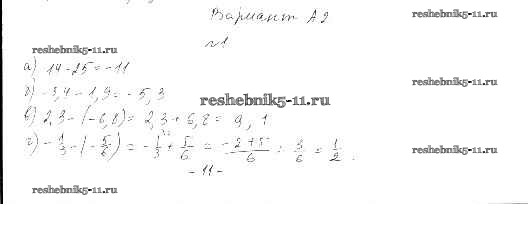 Вариант А2
reshebnik5-11.ru
№1
reshebnik5-11.ru
а) 14-25=-11
reshebnik5-11.ru
б) -3,4-1,9=-5,3
reshebnik5-11.ru
в) 2,3-(-6,8)=2,3+6,8=9,1
г) -1/3-(-5/6)=-1/3+5/6=(-2+5)/6=3/6=1/2.
reshebnik5-11.ru
-11-
reshebnik5-11.ru